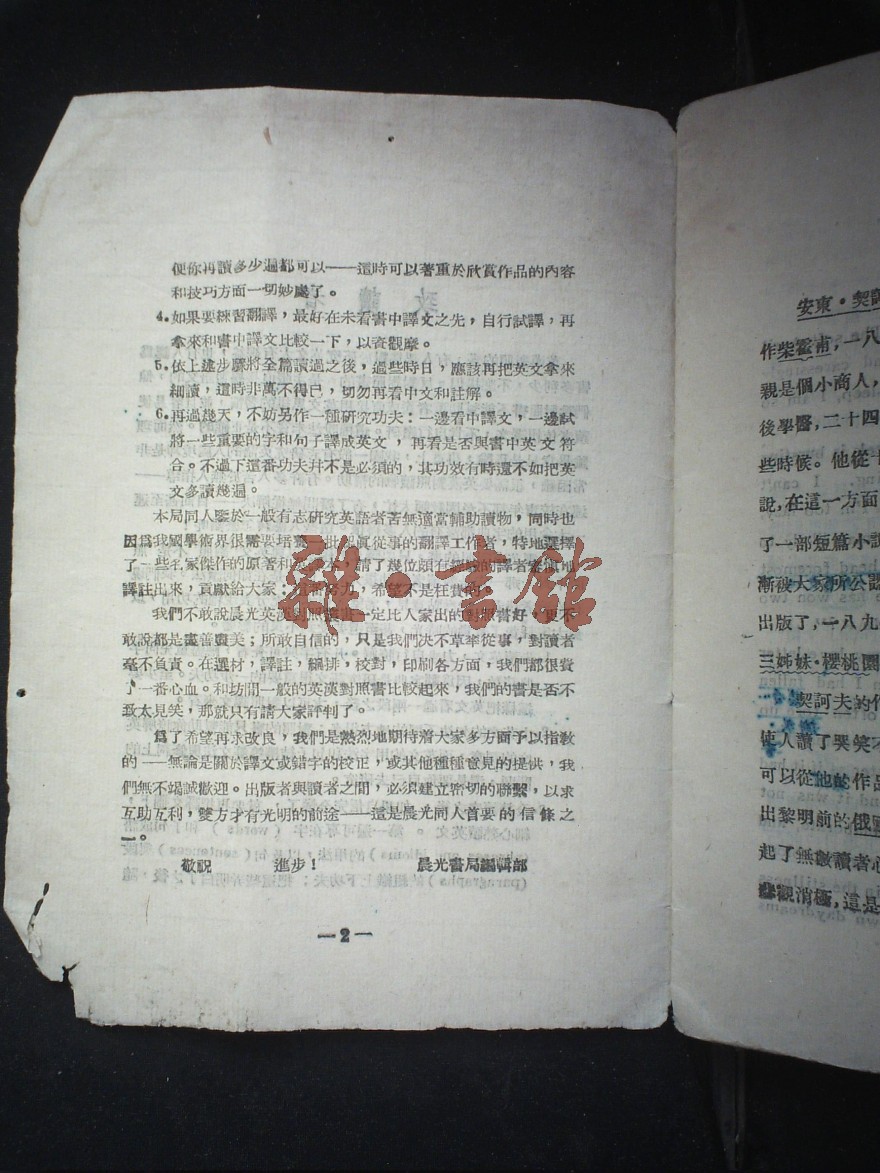 便你再讀多少遍都可以——這時可以著重於欣賞作品的內容
和技巧方面一切妙處了。
4.如果要練習翻譯，最好在未看書中譯文之先，自行試譯，再
拿來和書中譯文比較一下，以資觀摩。
5.依上述步驟將全篇讀過之後，過些時日，應該再把英文拿來
細讀，這時非萬不得已，切勿再看中文和註解。
6.再過幾天，不妨另作一種研究功夫：一邊看中譯文，一邊試
將一些重要的字和句子譯成英文，再看是否與書中英文符
合。不過下這番功夫幷不是必須的，其功效有時還不如把英
文多讀幾遍。
本局同人鑒於一般有志研究英語者苦無適當輔助讀物，同時也
因爲我國學術界很需要培養一批認眞從事的翻譯工作者，特地選擇
了一些名家傑作的原著和英譯本，請了幾位頗有經驗的譯者
譯註出來，貢獻給大家；這番努力，希望不是枉費的。
我們不敢說晨光英漢對照讀書一定比人家出的對照書好，更不
敢說都是盡善盡美；所敢自信的，只是我們决不草率從事，對讀者
毫不負責。在選材，譯註，編排，校對，印刷各方面，我們都很費
了一番心血。和坊間一般的英漢對照書比較起來，我們的書是否不
致太見笑，那就只有請大家評判了。
爲了希望再求改良，我們是熱烈地期待着大家多方面予以指敎
的——無論是關於譯文或錯字的校正，或其他種種意見的提供，我
們無不竭誠歡迎。出版者與讀者之間，必須建立密切的聯繫，以求
互助互利，雙方才有光明的前途——這是晨光同人首要的信條之
一。
敬祝　進步！　晨光書局編輯部
—2—
安東·契訶
作柴霍甫，一八
親是個小商人，
後學醫，二十四
些時候。他從十
說，在這一方面
了一部短篇小說
漸被大家所公認
出版了，一八九
三姊妹·櫻桃園
契訶夫的作
使人讀了哭笑不
可以從他的作品
出黎明前的俄國
起了無數讀者心
悲觀消極，這是
雜·書館